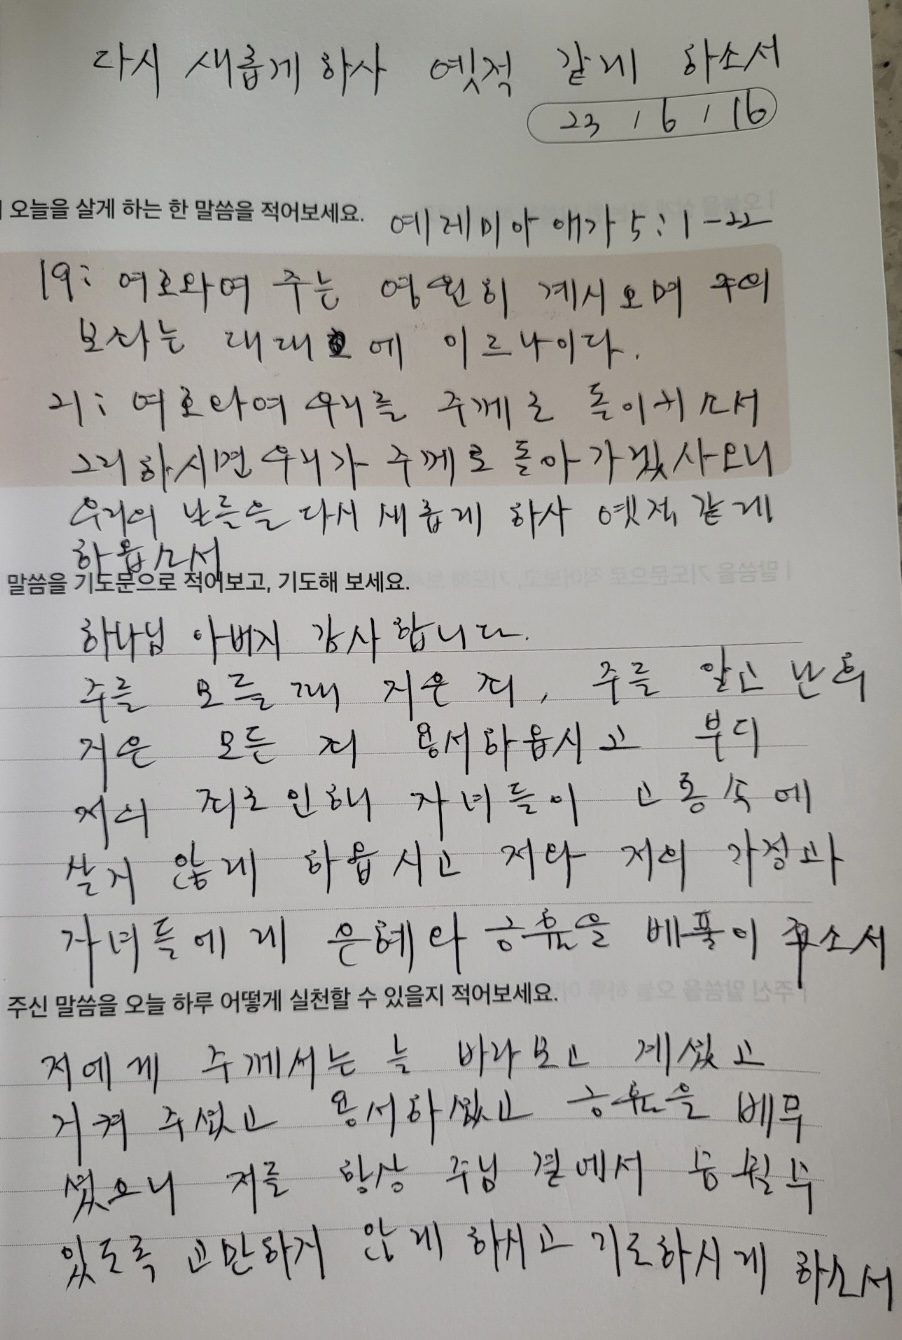 다시 새롭게 하사 옛적 같게 하소서
23 / 6 / 16
오늘을 살게 하는 한 말씀을 적어보세요.
예레미아 애가 5 : 1 - 22
19 : 여호와여 주는 영원히 계시오며 주의
보좌는 대대에 이르나이다.
21 : 여호와여 우리를 주께로 돌이키소서
그리하시면 우리가 주께로 돌아가겠사오니
우리의 날들을 다시 새롭게 하사 옛적 같게
하옵소서
말씀을 기도문으로 적어보고, 기도해 보세요.
하나님 아버지 감사합니다.
주를 모를 때 지은 죄, 주를 알고 난 후
지은 모든 죄 용서하옵시고 부디
저의 죄로 인해 자녀들이 고통속에
살지 않게 하옵시고 저와 저의 가정과
자녀들에게 은혜와 긍휼을 베풀어 주소서
주신 말씀을 오늘 하루 어떻게 실천할 수 있을지 적어보세요.
저에게 주께서는 늘 바라보고 계셨고
지켜 주셨고 용서하셨고 긍휼을 베푸
셨으니 저를 항상 주님 곁에서
있도록 교만하지 않게 하시고 기도하시게 하소서